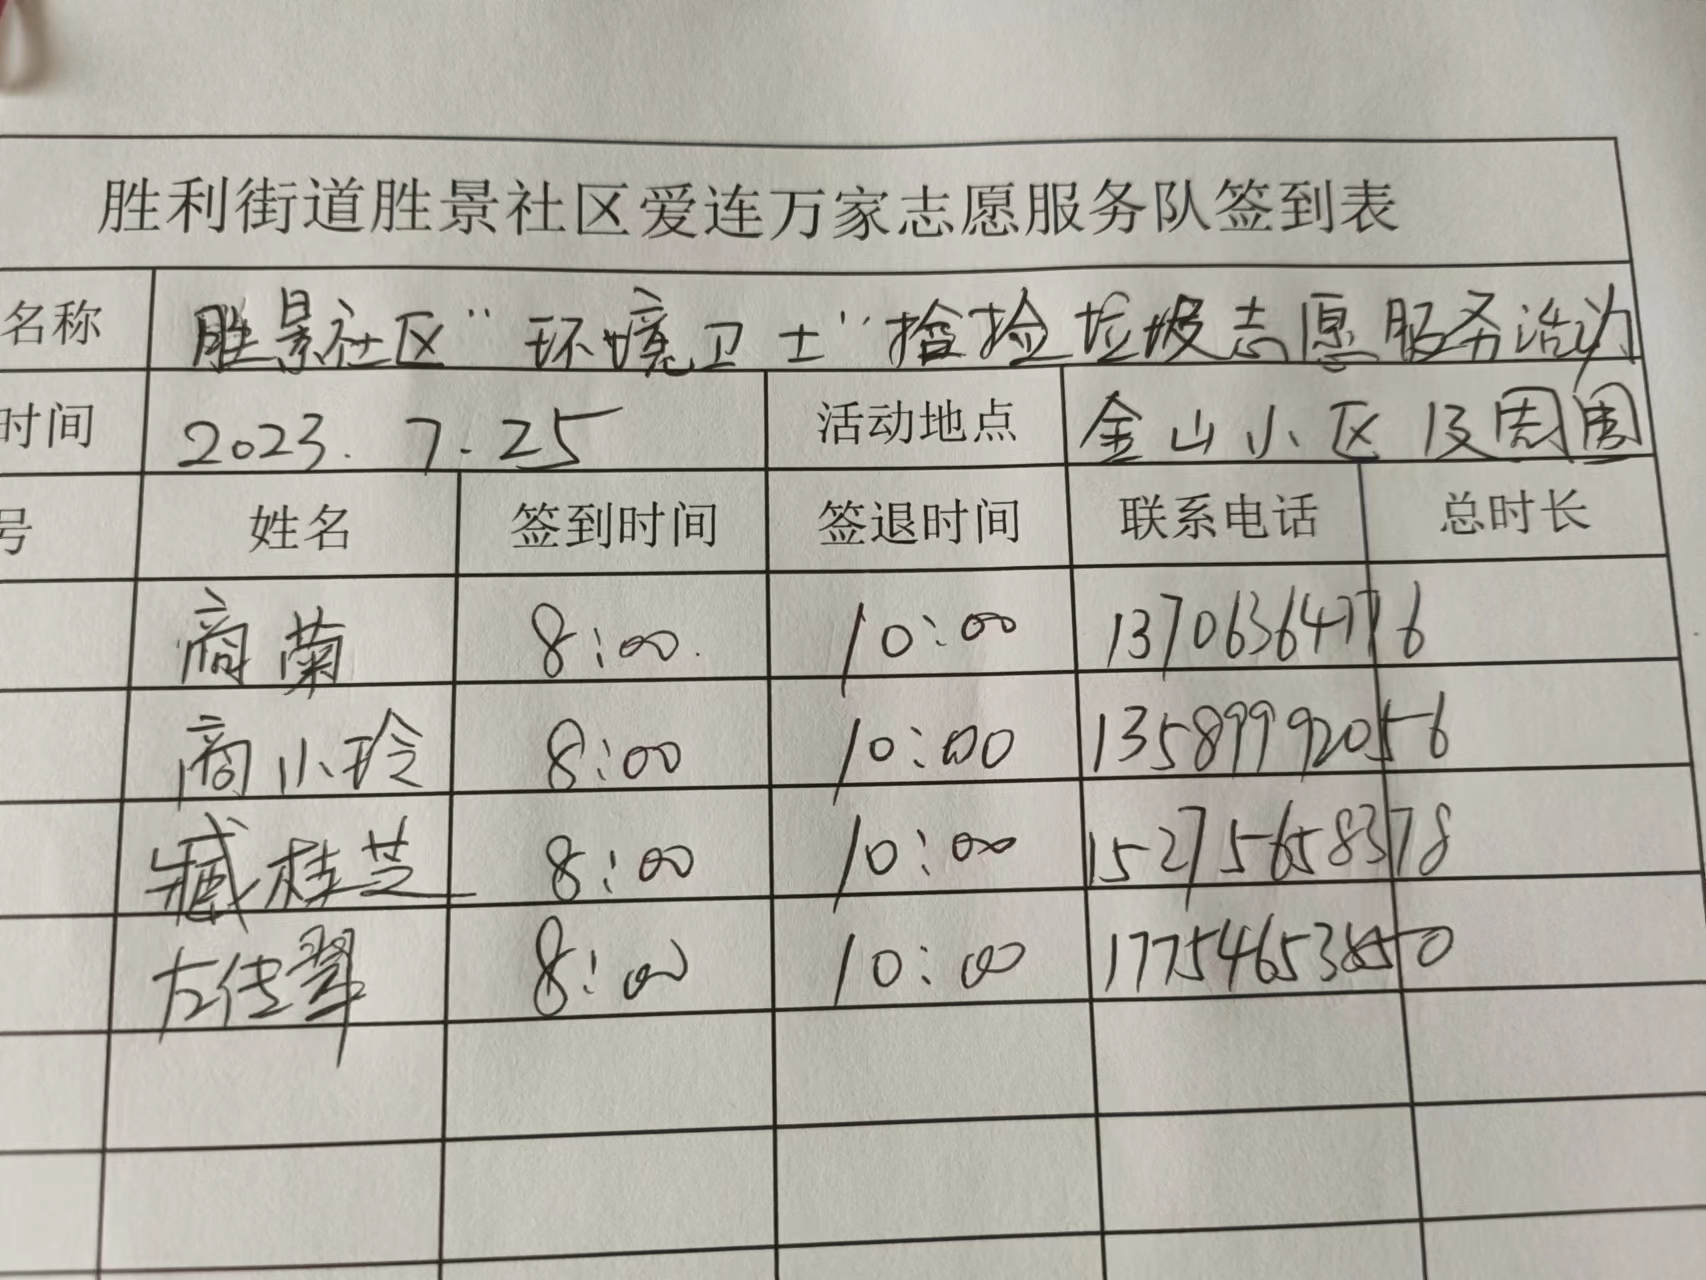 胜利街道胜景社区爱连万家志愿服务队签到表
名称 胜景社区“环境卫士”捡捡垃圾志愿服务活动
时间 2023.7.25 活动地点 金山小区及周围
号 姓名 签到时间 签退时间 联系电话 总时长
商菊 8:00 10:00 13706364776
商小玲 8:00 10:00 13589992056
臧桂芝 8:00 10:00 15275658378
左传翠 8:00 10:00